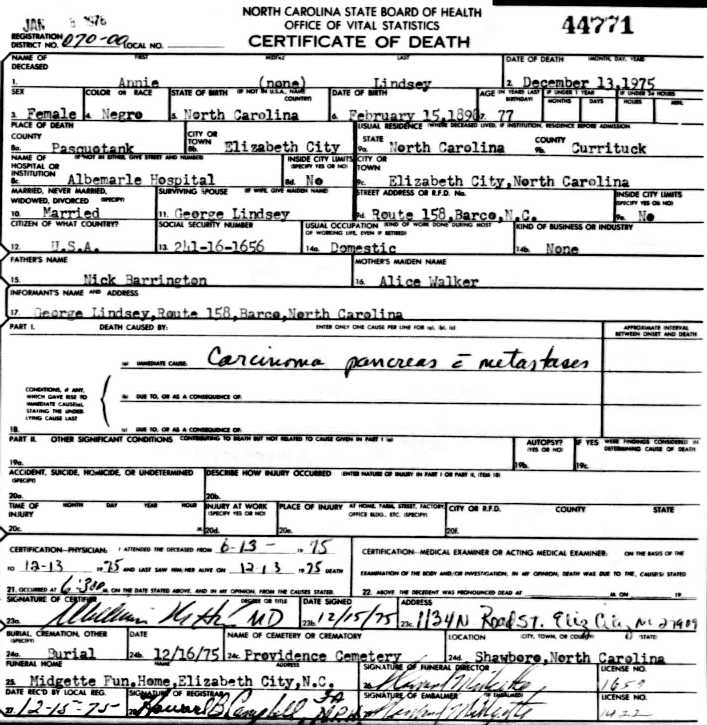 NORTH CAROLINA STATE BOARD OF HEALTH
JAN 8 1976 OFFICE OF VITAL STATISTICS 44771
REGISTRATION DISTRICT NO. 070-00 LOCAL NO. CERTIFICATE OF DEATH
NAME OF DECEASED FIRST MIDDLE LAST DATE OF DEATH (MONTH, DAY, YEAR)
1. Annie (none) Lindsey 2. December 13,1975
SEX COLOR OR RACE STATE OF BIRTH (IF NOT IN U.S.A., NAME COUNTRY) DATE OF BIRTH AGE (IN YEARS LAST BIRTHDAY) IF UNDER 1 YEAR MONTHS DAYS IF UNDER 24 HOURS HOURS MIN.
3. Female 4. Negro 5. North Carolina 6. February 15,1898 7. 77
PLACE OF DEATH USUAL RESIDENCE (WHERE DECEASED LIVED, IF INSTITUTION, RESIDENCE BEFORE ADMISSION
COUNTY CITY OR TOWN STATE COUNTY
8a. Pasquotank 8b. Elizabeth City 9a. North Carolina 9b. Currituck
NAME OF HOSPITAL OR INSTITUTION (IF NOT IN EITHER, GIVE STREET AND NUMBER) INSIDE CITY LIMITS (SPECIFY YES OR NO) CITY OR TOWN
8c. Albemarle Hospital 8d. No 9c. Elizabeth City,North Carolina
MARRIED, NEVER MARRIED, WIDOWED, DIVORCED (SPECIFY) SURVIVING SPOUSE (IF WIFE, GIVE MAIDEN NAME) STREET ADDRESS OR R.F.D. No. INSIDE CITY LIMITS (SPECIFY YES OR NO)
10. Married 11. George Lindsey 9d. Route 158,Barco,N.C. 9e. No
CITIZEN OF WHAT COUNTRY? SOCIAL SECURITY NUMBER USUAL OCCUPATION (KIND OF WORK DONE DURING MOST OF WORKING LIFE, EVEN IF RETIRED) KIND OF BUSINESS OR INDUSTRY
12. U.S.A. 13. 241-16-1656 14a. Domestic 14b. None
FATHER'S NAME MOTHER'S MAIDEN NAME
15. Nick Barrington 16. Alice Walker
INFORMANT'S NAME AND ADDRESS
17. George Lindsey,Route 158,Barco,North Carolina
PART I. DEATH CAUSED BY: ENTER ONLY ONE CAUSE PER LINE FOR (a), (b), (c) APPROXIMATE INTERVAL BETWEEN ONSET AND DEATH
(a) IMMEDIATE CAUSE: Carcinoma pancreas c̄ metastases
CONDITIONS, IF ANY, WHICH GAVE RISE TO IMMEDIATE CAUSE(a), STATING THE UNDERLYING CAUSE LAST
(b) DUE TO, OR AS A CONSEQUENCE OF:
18. (c) DUE TO, OR AS A CONSEQUENCE OF:
PART II. OTHER SIGNIFICANT CONDITIONS CONTRIBUTING TO DEATH BUT NOT RELATED TO CAUSE GIVEN IN PART I (a) AUTOPSY? (YES OR NO) IF YES WERE FINDINGS CONSIDERED IN DETERMINING CAUSE OF DEATH
19a. 19b. 19c.
ACCIDENT, SUICIDE, HOMICIDE, OR UNDETERMINED (SPECIFY) DESCRIBE HOW INJURY OCCURRED (ENTER NATURE OF INJURY IN PART I OR PART II, ITEM 18)
20a. 20b.
TIME OF INJURY MONTH DAY YEAR HOUR INJURY AT WORK (SPECIFY YES OR NO) PLACE OF INJURY AT HOME, FARM, STREET, FACTORY, OFFICE BLDG., ETC. (SPECIFY) CITY OR R.F.D. COUNTY STATE
20c. M 20d. 20e. 20f.
CERTIFICATION—PHYSICIAN: I ATTENDED THE DECEASED FROM 6-13- 1975 CERTIFICATION—MEDICAL EXAMINER OR ACTING MEDICAL EXAMINER: ON THE BASIS OF THE
TO 12-13 1975 AND LAST SAW HIM/HER ALIVE ON 12-13 1975 DEATH EXAMINATION OF THE BODY AND/OR INVESTIGATION, IN MY OPINION, DEATH WAS DUE TO THE CAUSE(S) STATED
21. OCCURRED AT M, ON THE DATE STATED ABOVE, AND IN MY OPINION, FROM THE CAUSES STATED. 22. ABOVE. THE DECEDENT WAS PRONOUNCED DEAD AT M. ON 19
SIGNATURE OF CERTIFIER DEGREE OR TITLE DATE SIGNED ADDRESS
23a. William MD 23b. 12/15/75 23c. 1134 N Road St. Eliz City NC 27909
BURIAL, CREMATION, OTHER (SPECIFY) DATE NAME OF CEMETERY OR CREMATORY LOCATION CITY, TOWN, OR COUNTY STATE
24a. Burial 24b. 12/16/75 24c. Providence Cemetery 24d. Shawboro,North Carolina
FUNERAL HOME NAME ADDRESS SIGNATURE OF FUNERAL DIRECTOR LICENSE NO.
25. Midgette Fun.Home,Elizabeth City,N.C. 26. 1659
DATE REC'D BY LOCAL REG. SIGNATURE OF REGISTRAR SIGNATURE OF EMBALMER (IF EMBALMED) LICENSE NO.
27. 12-15-75 28. Howard B Campbell